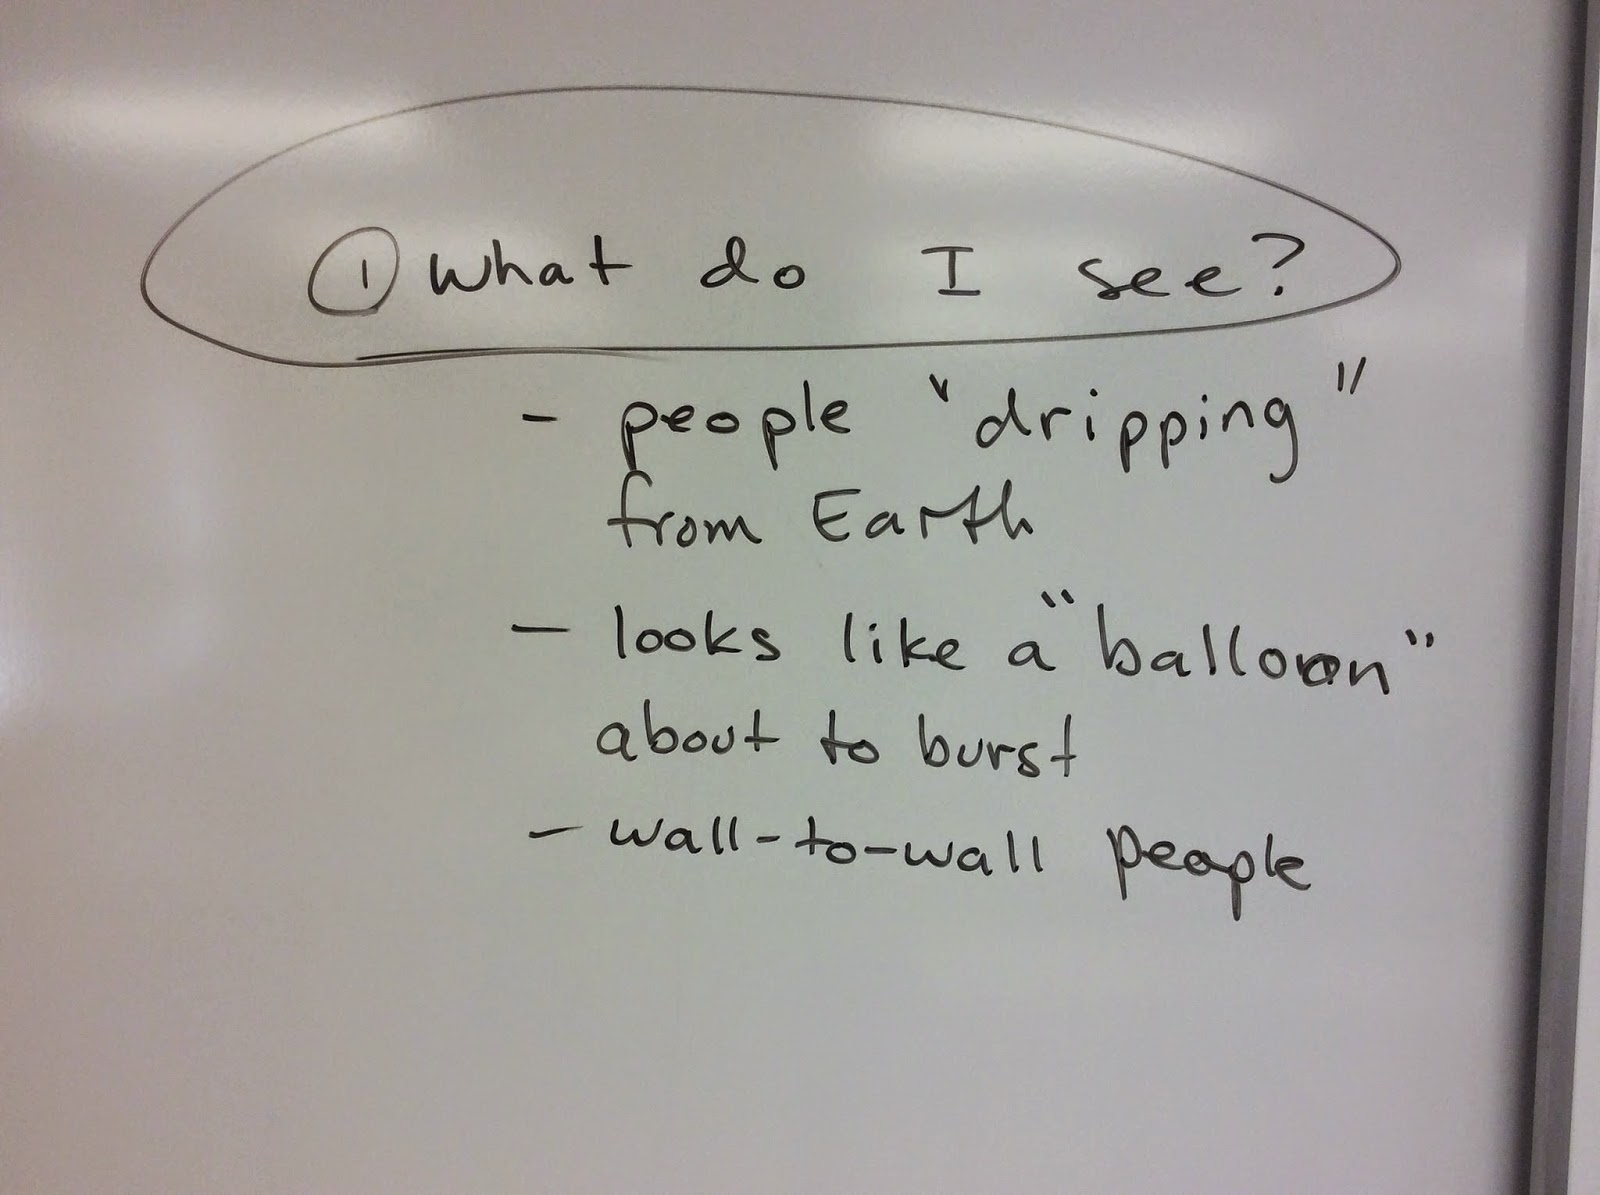 ① What do I see?
- people "dripping"
from Earth
- looks like a "balloon"
about to burst
- wall-to-wall people